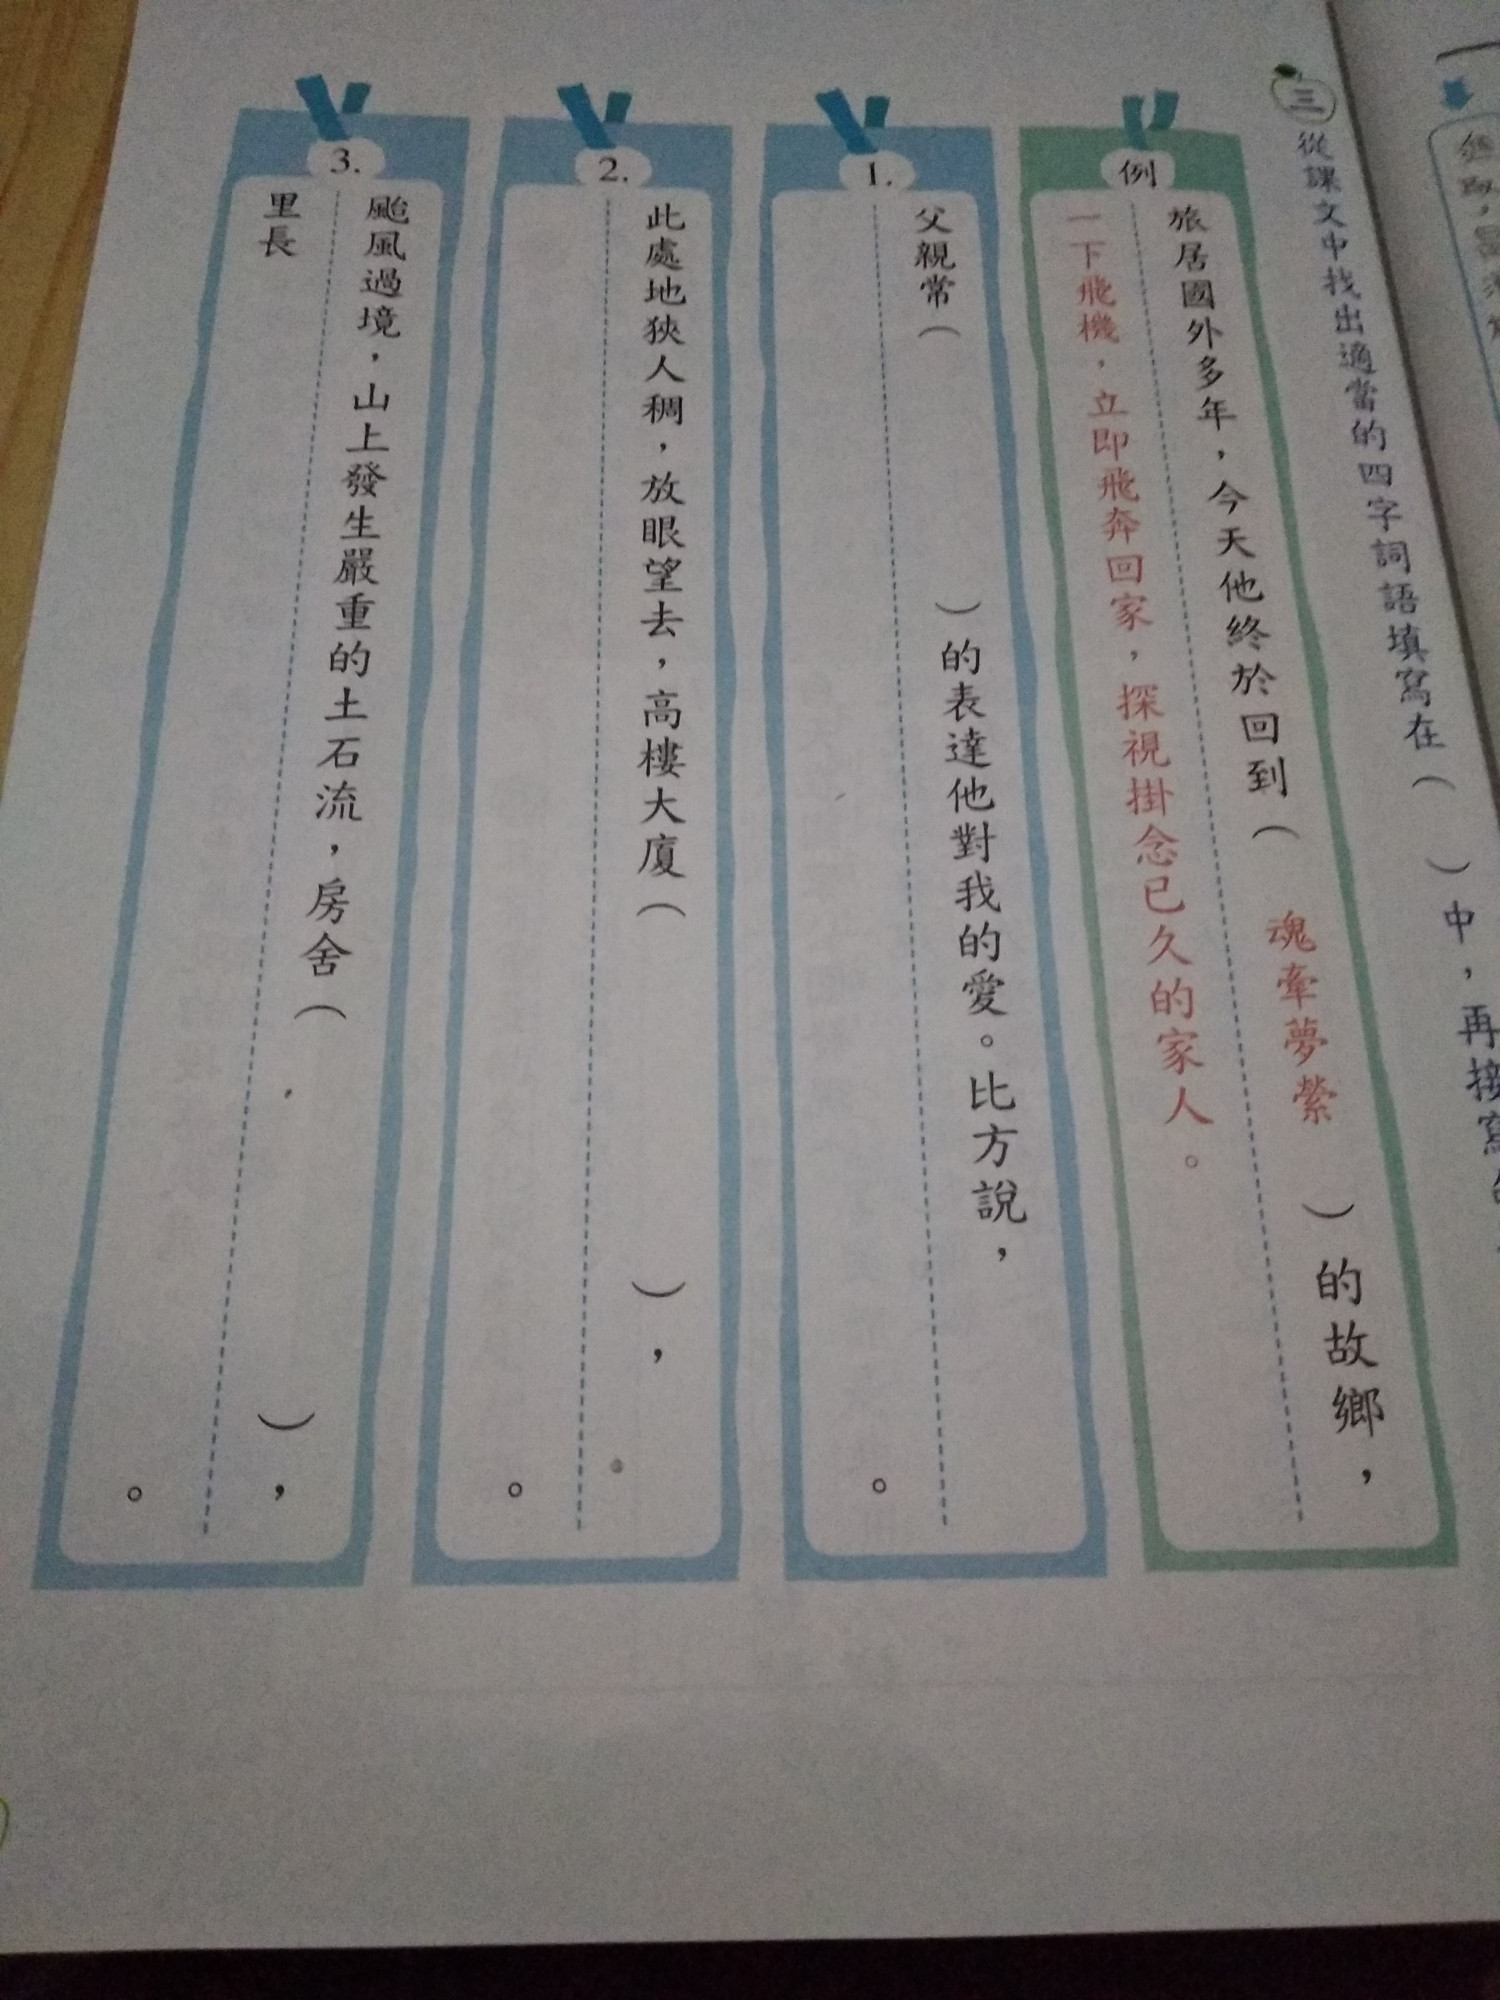 三 從課文中找出適當的四字詞語填寫在( )中，再接寫
例
旅居國外多年，今天他終於回到( 魂牽夢縈 )的故鄉，
一下飛機，立即飛奔回家，探視掛念已久的家人。
1.
父親常( )的表達他對我的愛。比方說，
。
2.
此處地狹人稠，放眼望去，高樓大廈( )，
。
3.
颱風過境，山上發生嚴重的土石流，房舍( )，
里長 。